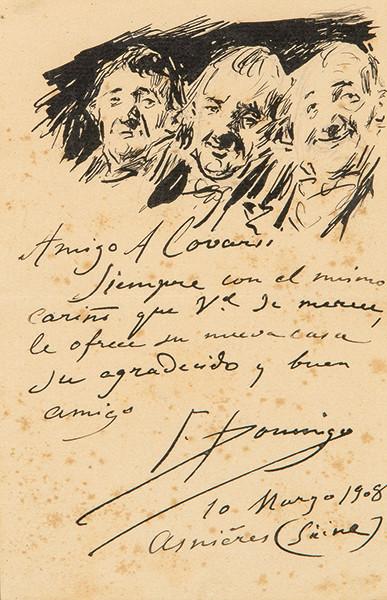 Amigo A Covarsí
Siempre con el mismo
cariño que Vd. se merece,
le ofrece su nueva casa
su agradecido y buen
amigo
F. Domingo
10 Marzo 1908
Asniéres (Seine)